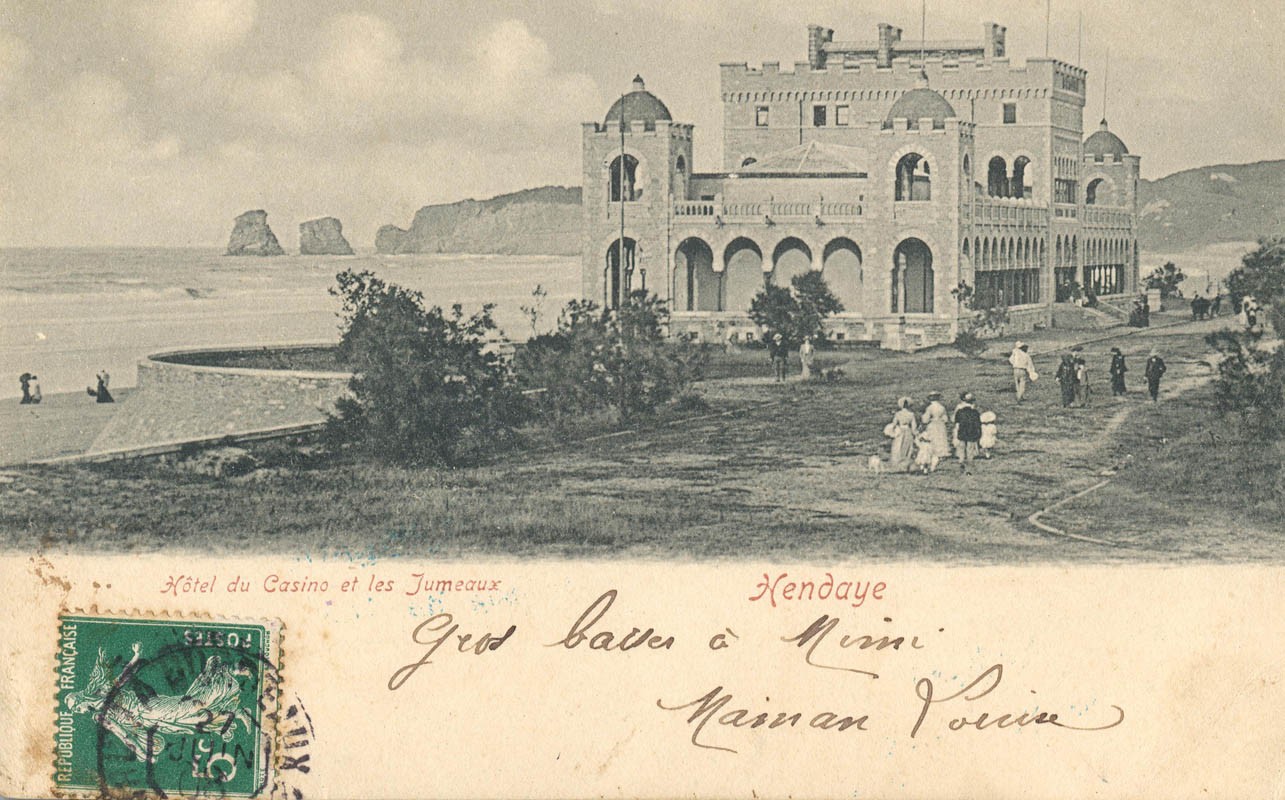 Hôtel du Casino et les Jumeaux
Hendaye
Gros baiser à Mimi
Maman Louise
RÉPUBLIQUE FRANÇAISE
POSTES
5c
27
JUIN